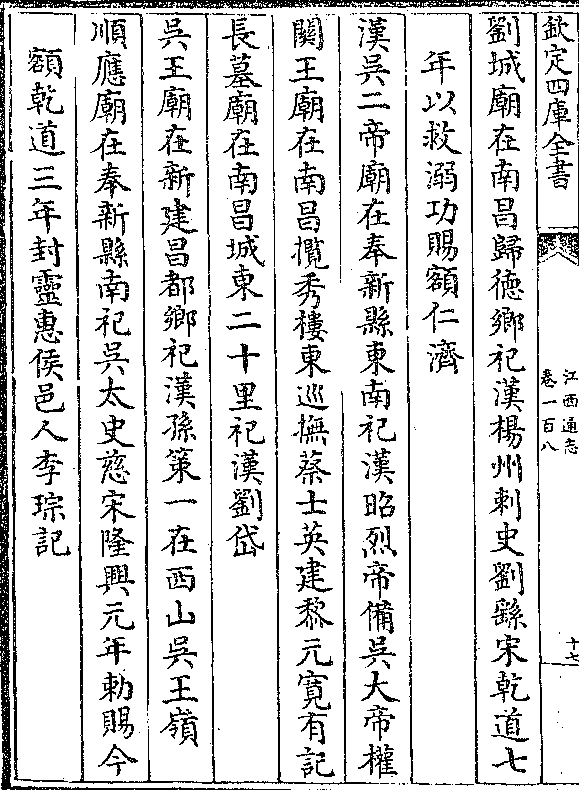 欽定四庫全書
江西通志
卷一百八
十七
劉城廟在南昌歸徳鄉祀漢楊州刺史劉繇宋乾道七
年以救溺功賜額仁濟
漢吳二帝廟在奉新縣東南祀漢昭烈帝備吳大帝權
關王廟在南昌攬秀樓東巡撫蔡士英建黎元寛有記
長墓廟在南昌城東二十里祀漢劉岱
吳王廟在新建昌都鄉祀漢孫策一在西山吳王嶺
順應廟在奉新縣南祀吳太史慈宋隆興元年勅賜今
額乾道三年封靈惠侯邑人李琮記